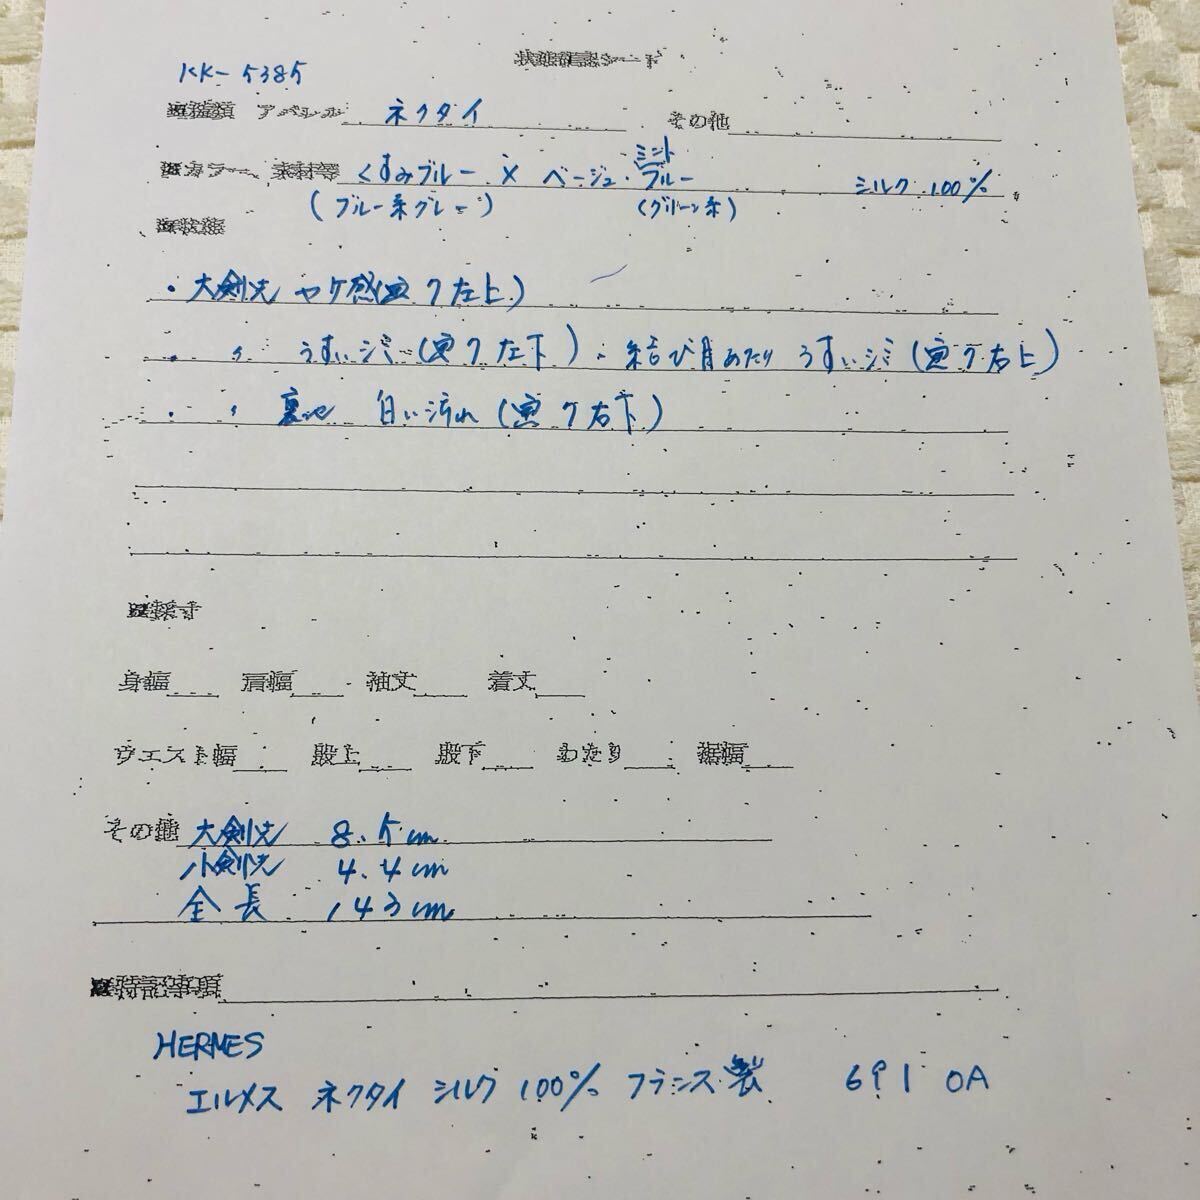 状態確認シート
KK-5385
■種類 アパレル ネクタイ その他
ミント
■カラー、素材等 くすみブルー × ベージュ・ブルー シルク 100%
(ブルー系グレー) (グリーン系)
■状態
・大剣先 ヤケ感(画ク左上)
・ 〃 うすいシミ(画ク左下)・結び目あたり うすいシミ(画ク右上)
・ 〃 裏地 白い汚れ(画ク右下)
■採寸
身幅 肩幅 袖丈 着丈
ウエスト幅 股上 股下 わたり 裾幅
その他 大剣先 8.5cm
小剣先 4.4cm
全長 143cm
■特記事項
HERMES
エルメス ネクタイ シルク 100% フランス製 691 OA